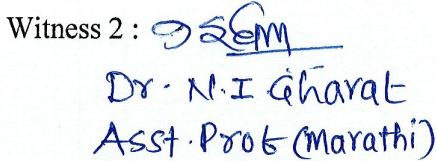 Witness 2 :
Dr. N.I Gharat
Asst. Prof (Marathi)